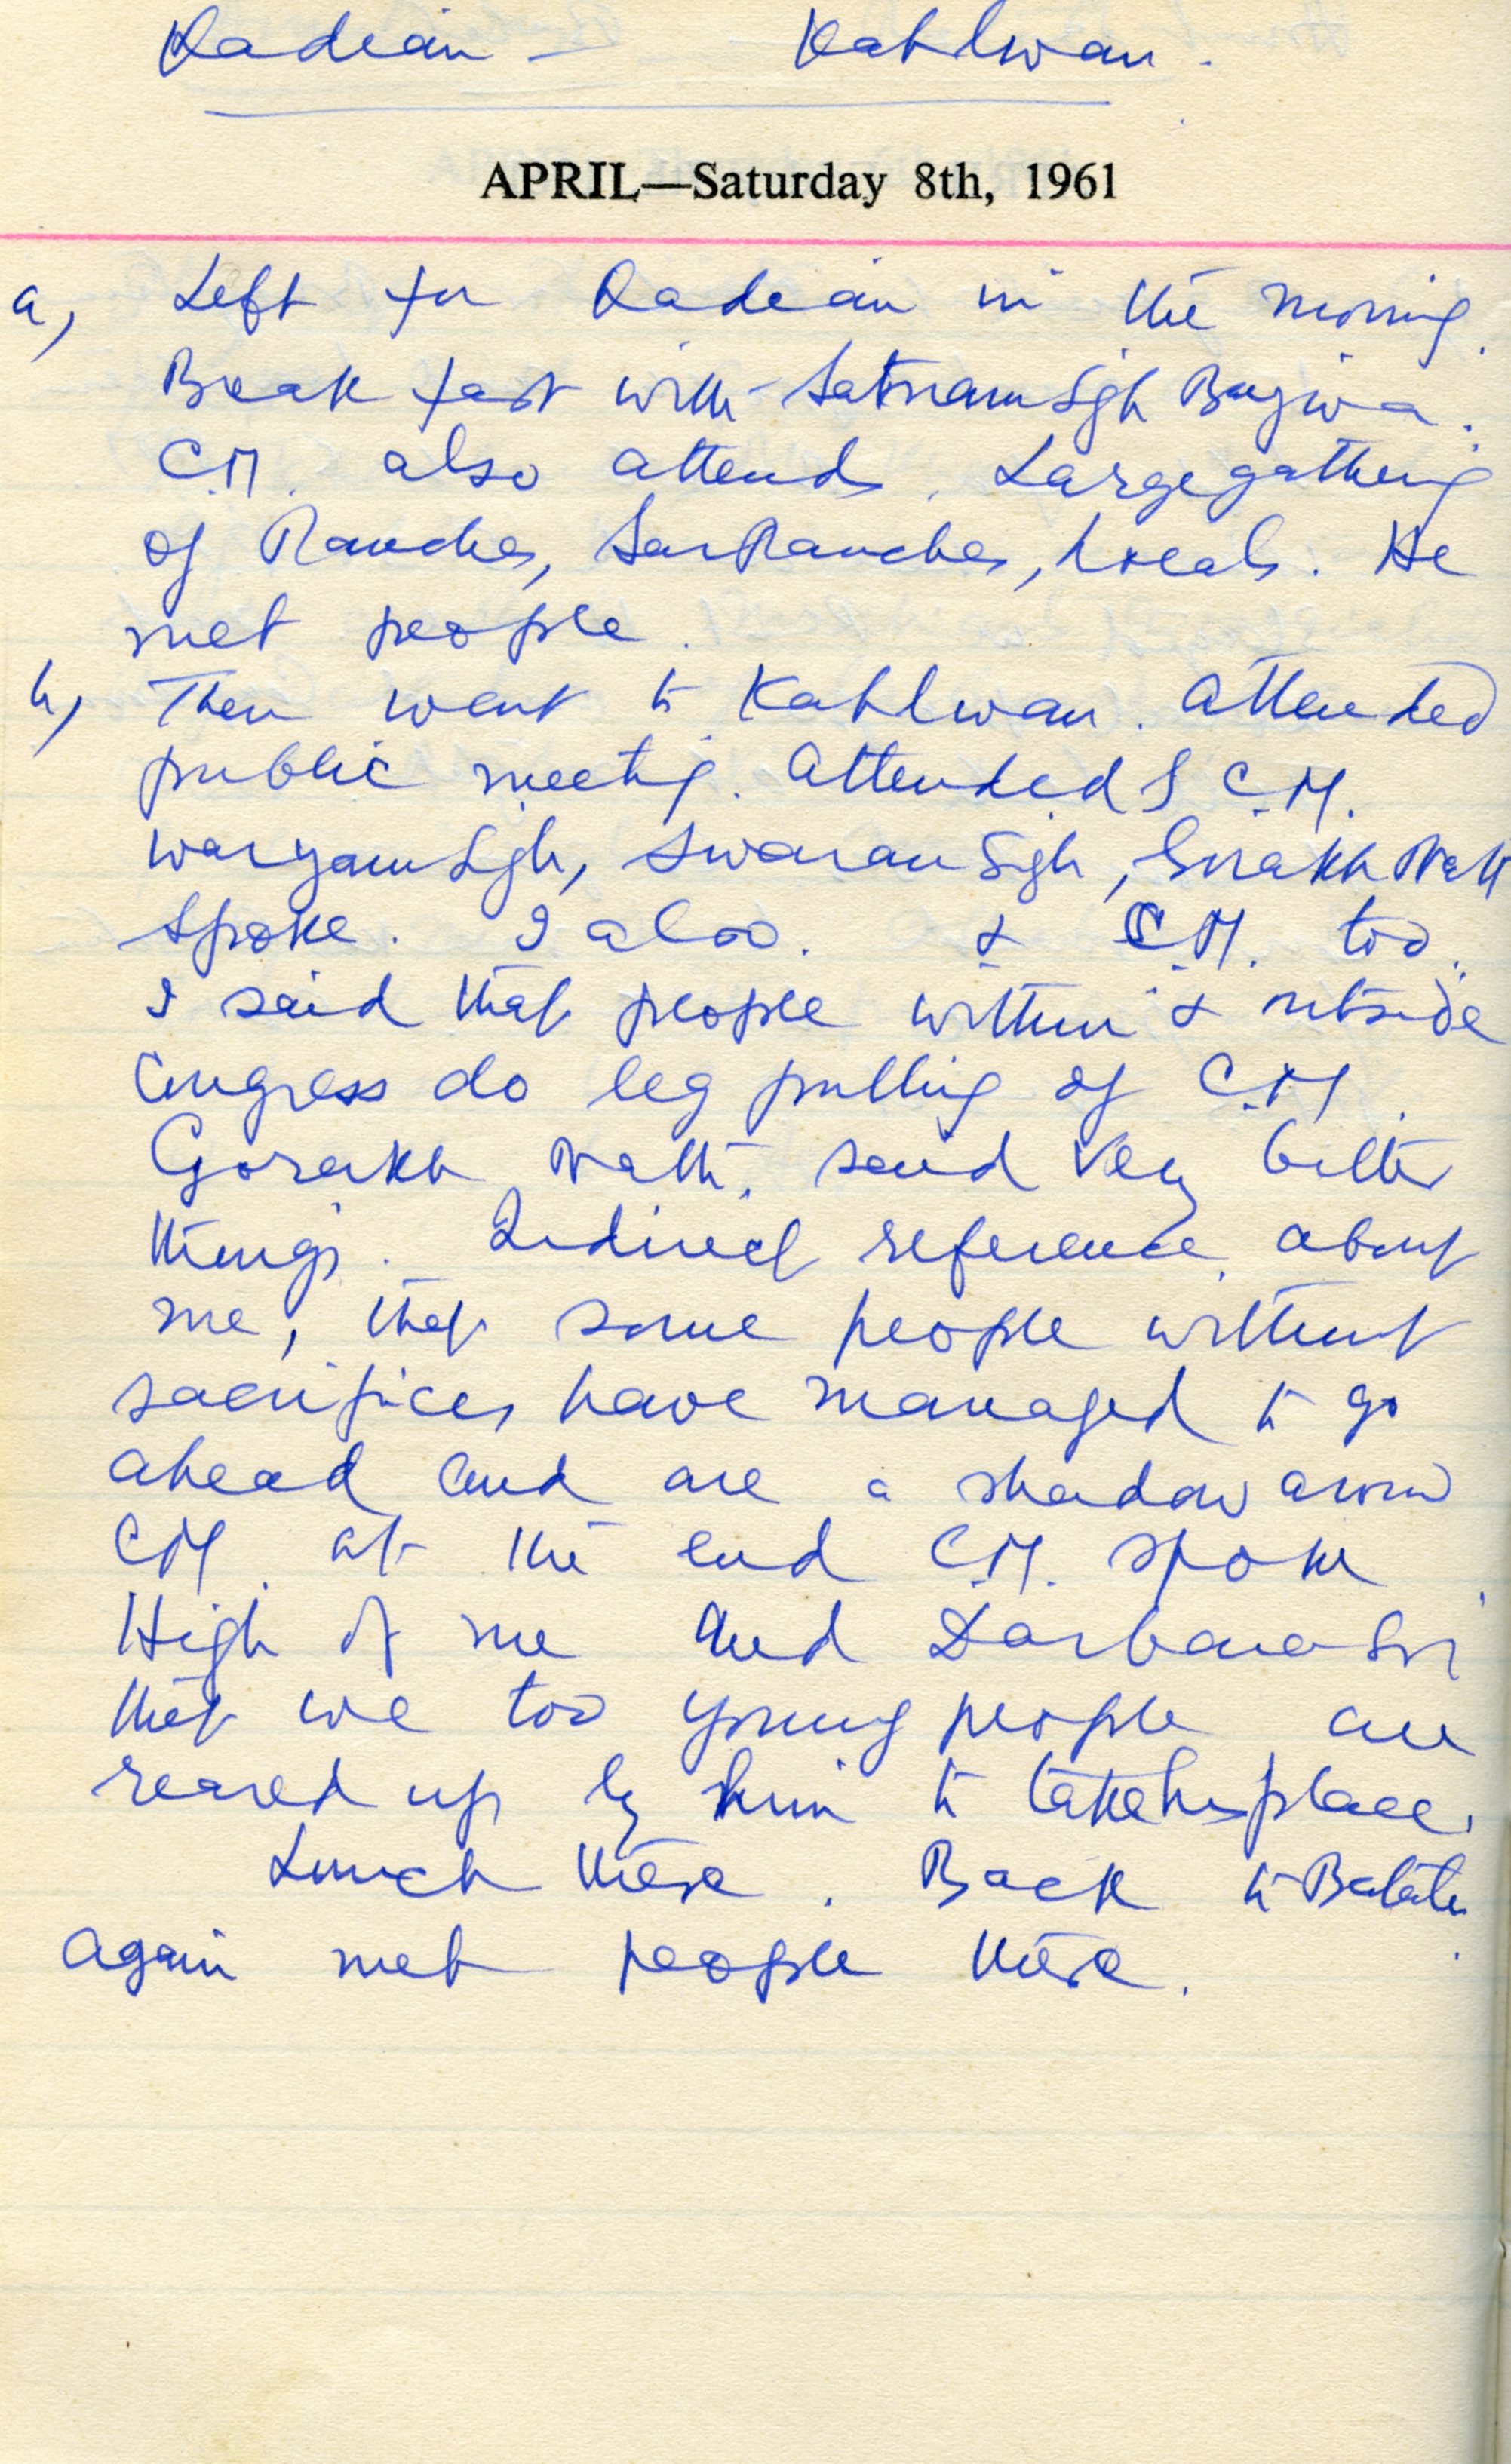 Qadian - Kahlwan.
APRIL—Saturday 8th, 1961
a) Left for Qadian in the morning.
Break fast with Satnam Sgh Bajwa.
C.M. also attends. Large gathering
of Panches, SarPanches, locals. He
met people.
b) Then went to Kahlwan. Attended
public meeting. Attended C.M.
Waryam Sgh, Swaran Sgh, Gorakh Nath
spoke. I also. & C.M. too.
I said that people within & outside
Congress do leg pulling of C.M.
Gorakh Nath, said very bitter
things. Indirect reference about
me, that some people without
sacrifices have managed to go
ahead and are a shadow around
CM. At the end C.M. spoke
High of me and Darbara
that we too young people are
reared up by him to take his place.
Lunch there. Back to Batala
again met people there.